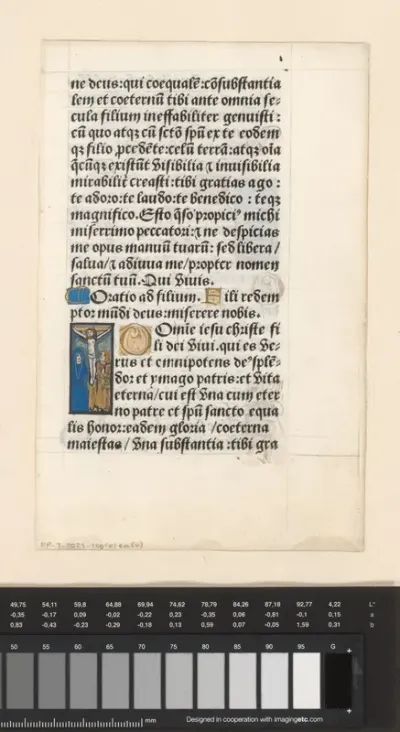 ne deus:qui coequalē:cōsubstantia
lem et coeternū tibi ante omnia se-
cula filium ineffabiliter genuisti:
cū quo atqȝ cū sctō spū ex te eodem
qȝ filio ꝓcedēte:celū terrā:atqȝ oīa
q̄cūqȝ existūt visibilia ⁊ inuisibilia
mirabilit̄ creasti:tibi gratias ago:
te adoro:te laudo:te benedico:teqȝ
magnifico.Esto q̄so propici⁹ michi
miserrimo peccatori:⁊ ne despicias
me opus manuū tuarū: sed libera/
salua/⁊ adiuua me/propter nomen
sanctū tuū.Qui viuis.
Oratio ad filium. Fili redem
ptor mūdi deus:miserere nobis.
Domie iesu christe fi
li dei viui.qui es ve-
rus et omnipotens de⁹splē-
dor et ymago patris:et vita
eterna/cui est vna cum eter
no patre et spū sancto equa
lis honor:eadem gloria/coeterna
maiestas/vna substantia:tibi gra
49,75 54,11 59,8 64,88 69,94 74,62 78,79 84,26 87,18 92,77 4,22 L*
-0,35 -0,17 0,09 -0,02 -0,22 0,23 -0,35 0,06 -0,81 -0,1 0,15 a
0,83 -0,43 -0,23 -0,29 -0,18 0,13 0,59 0,07 -0,05 1,59 0,31 b
50 55 60 65 70 75 80 85 90 95 G
mm
Designed in cooperation with imagingetc.com